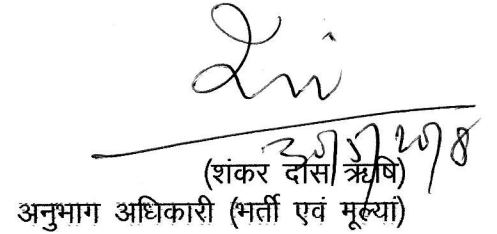 30/5/2018
(शंकर दास ऋषि)
अनुभाग अधिकारी (भर्ती एवं मूल्यां)